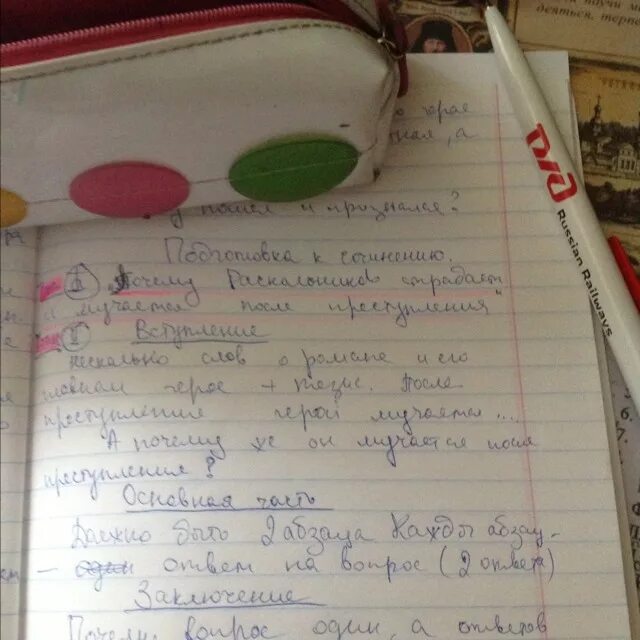 деяться, терп
о крае
ная, а
пошёл и признался?
Подготовка к сочинению.
Почему Раскольников страдает
и мучается после преступления
Вступление
несколько слов о романе и его
главном герое + тезис. После
преступления герой мучается...
А почему же он мучается после
преступление?
Основная часть
Должно быть 2 абзаца Кажды абзац-
- один ответ на вопрос (2 ответ)
Заключение
Почему вопрос один, а ответов
РЖД
Russian Railways